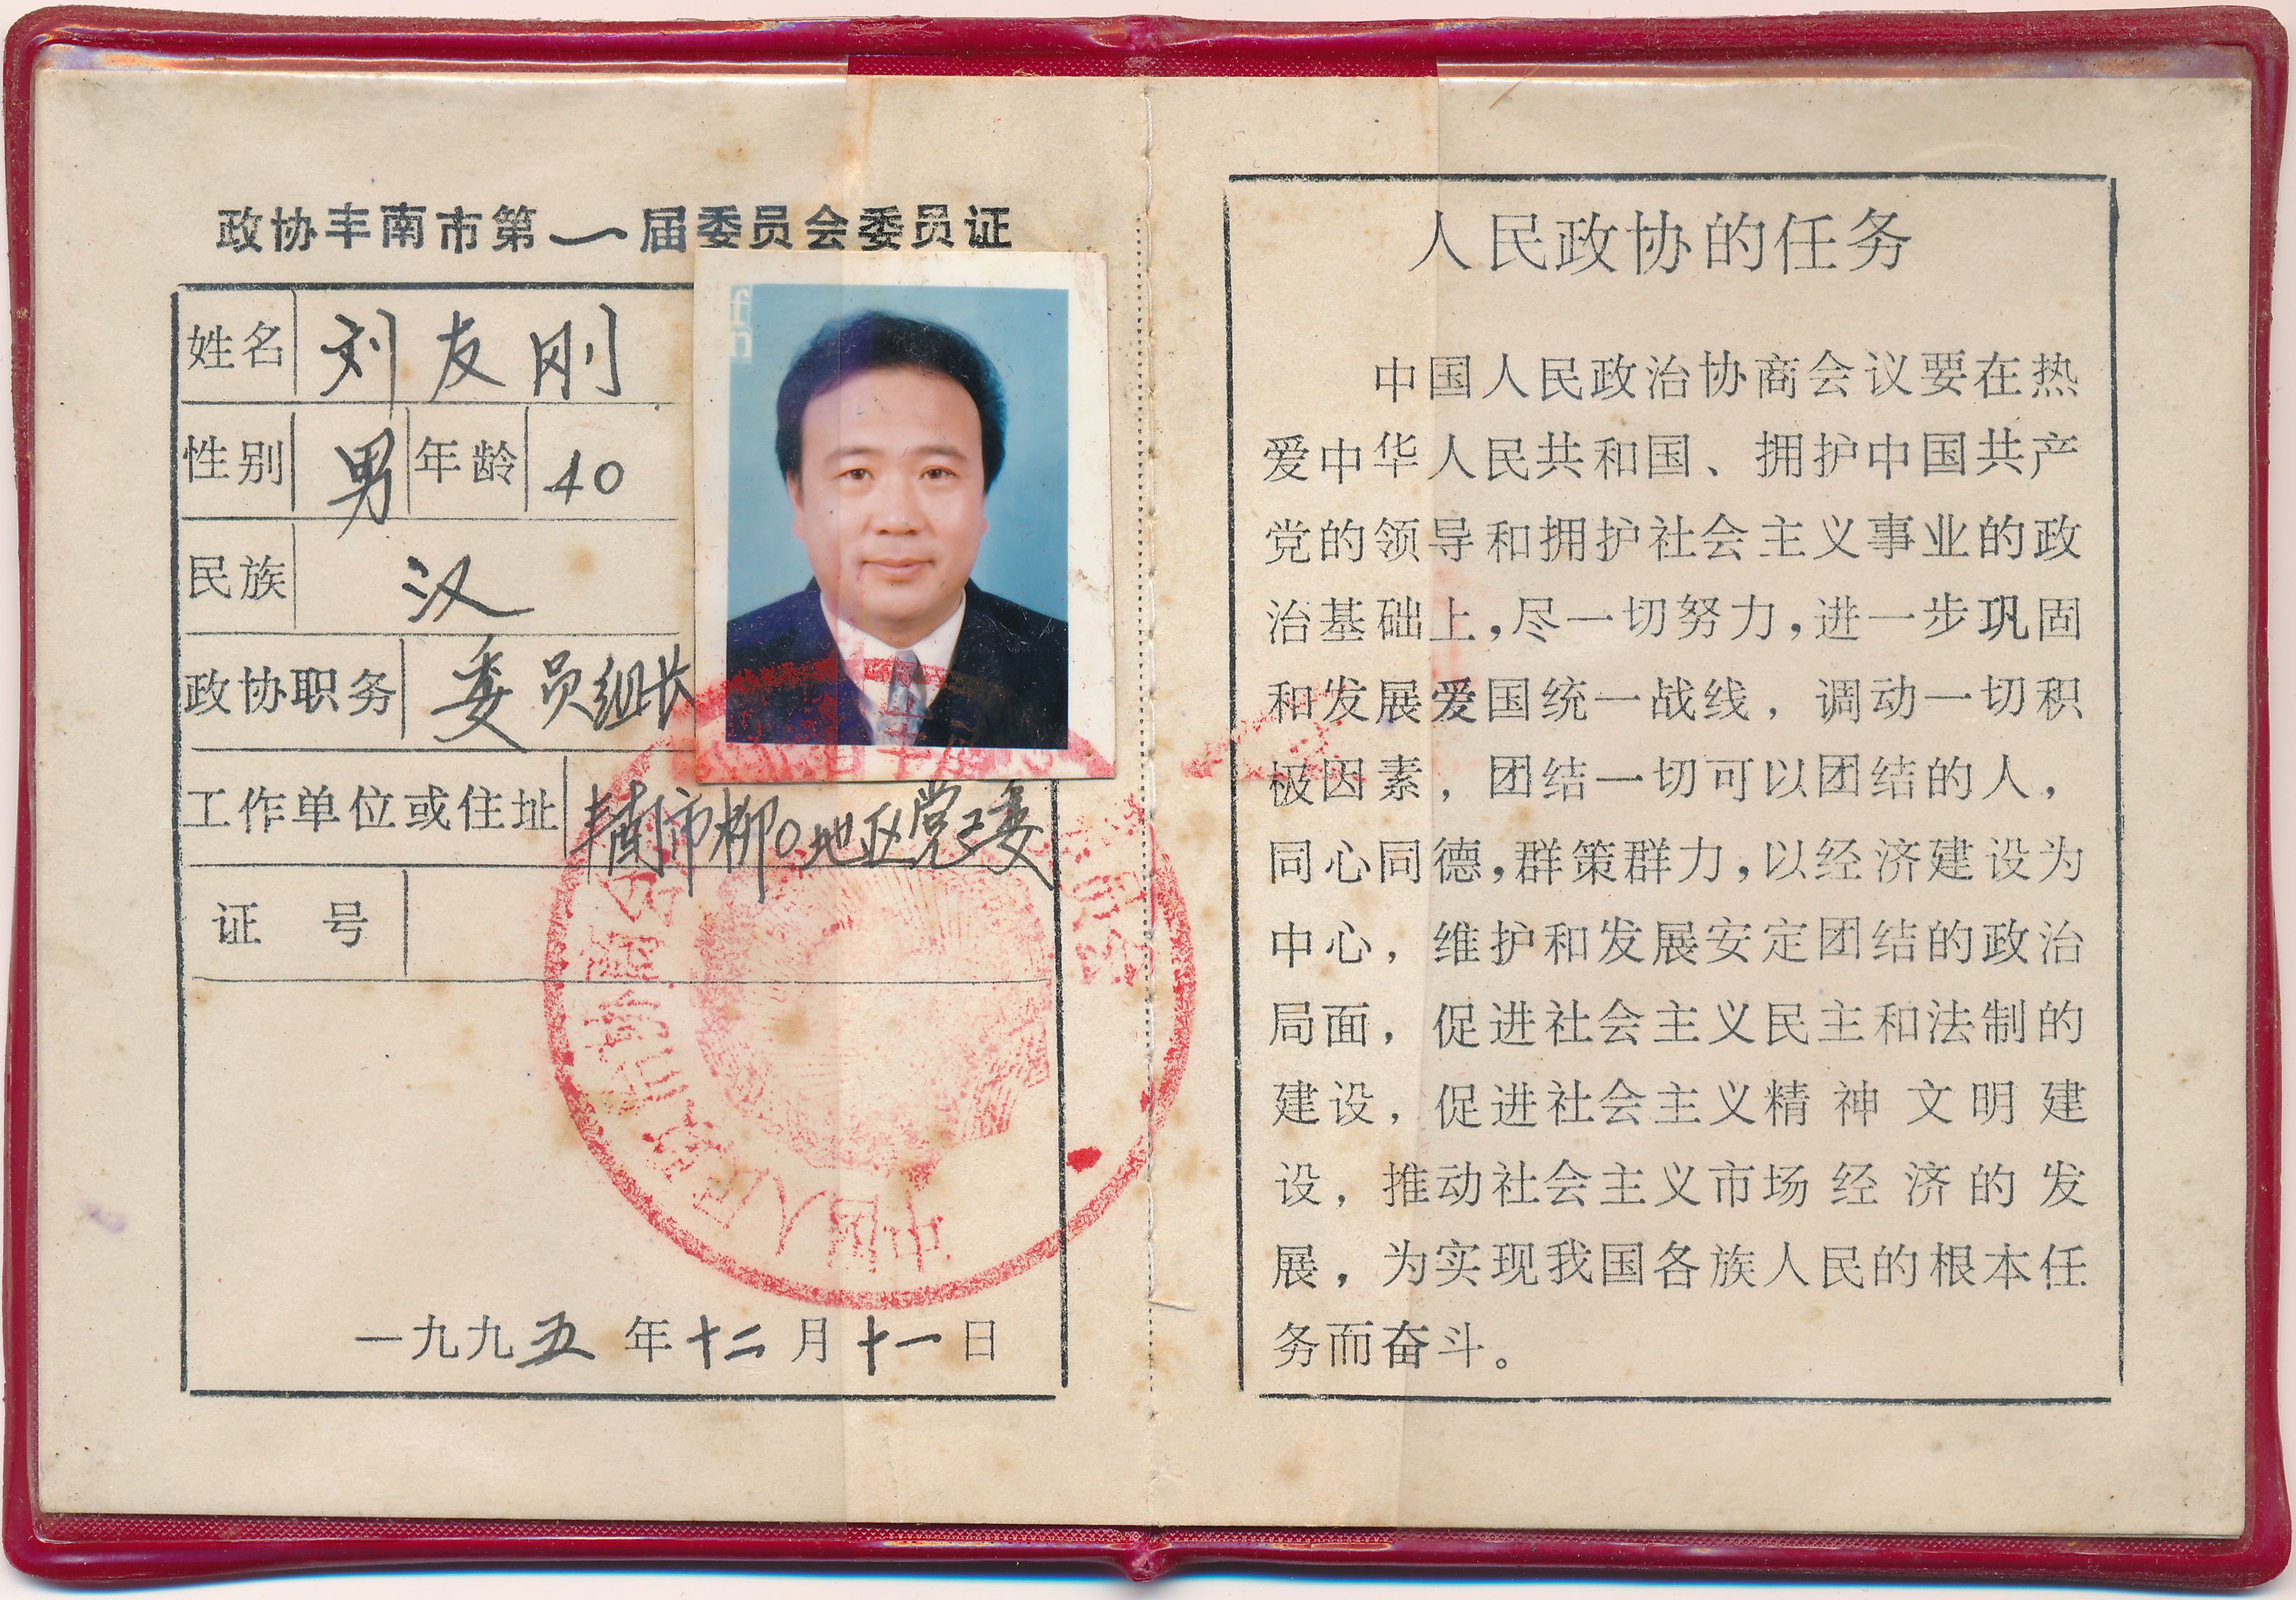 政协丰南市第一届委员会委员证
姓名 刘友刚
性别 男 年龄 40
民族 汉
政协职务 委员组长
工作单位或住址 丰南市柳O地区党工委
证号
一九九五年十二月十一日
中国人民政治协商会议
人民政协的任务
中国人民政治协商会议要在热
爱中华人民共和国、拥护中国共产
党的领导和拥护社会主义事业的政
治基础上,尽一切努力,进一步巩固
和发展爱国统一战线，调动一切积
极因素，团结一切可以团结的人，
同心同德,群策群力,以经济建设为
中心，维护和发展安定团结的政治
局面，促进社会主义民主和法制的
建设，促进社会主义精神文明建
设，推动社会主义市场经济的发
展，为实现我国各族人民的根本任
务而奋斗。